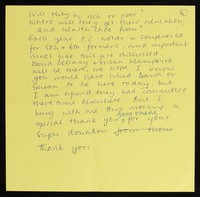 Will they be rich or poor?
Where will they get their education,
and health care from?
Each year P.C. holds a conference
for 5th & 6th formers, and important
issues like this are discussed.
David Bellamy & Susan Hampshire
will be there, we hope. I know
you would have liked David or
Susan to be here today, but
I am afraid they had committed
there time elsewhere. But I
bring with me this morning a
special thank you from them for your
super donation from them
Thank you.